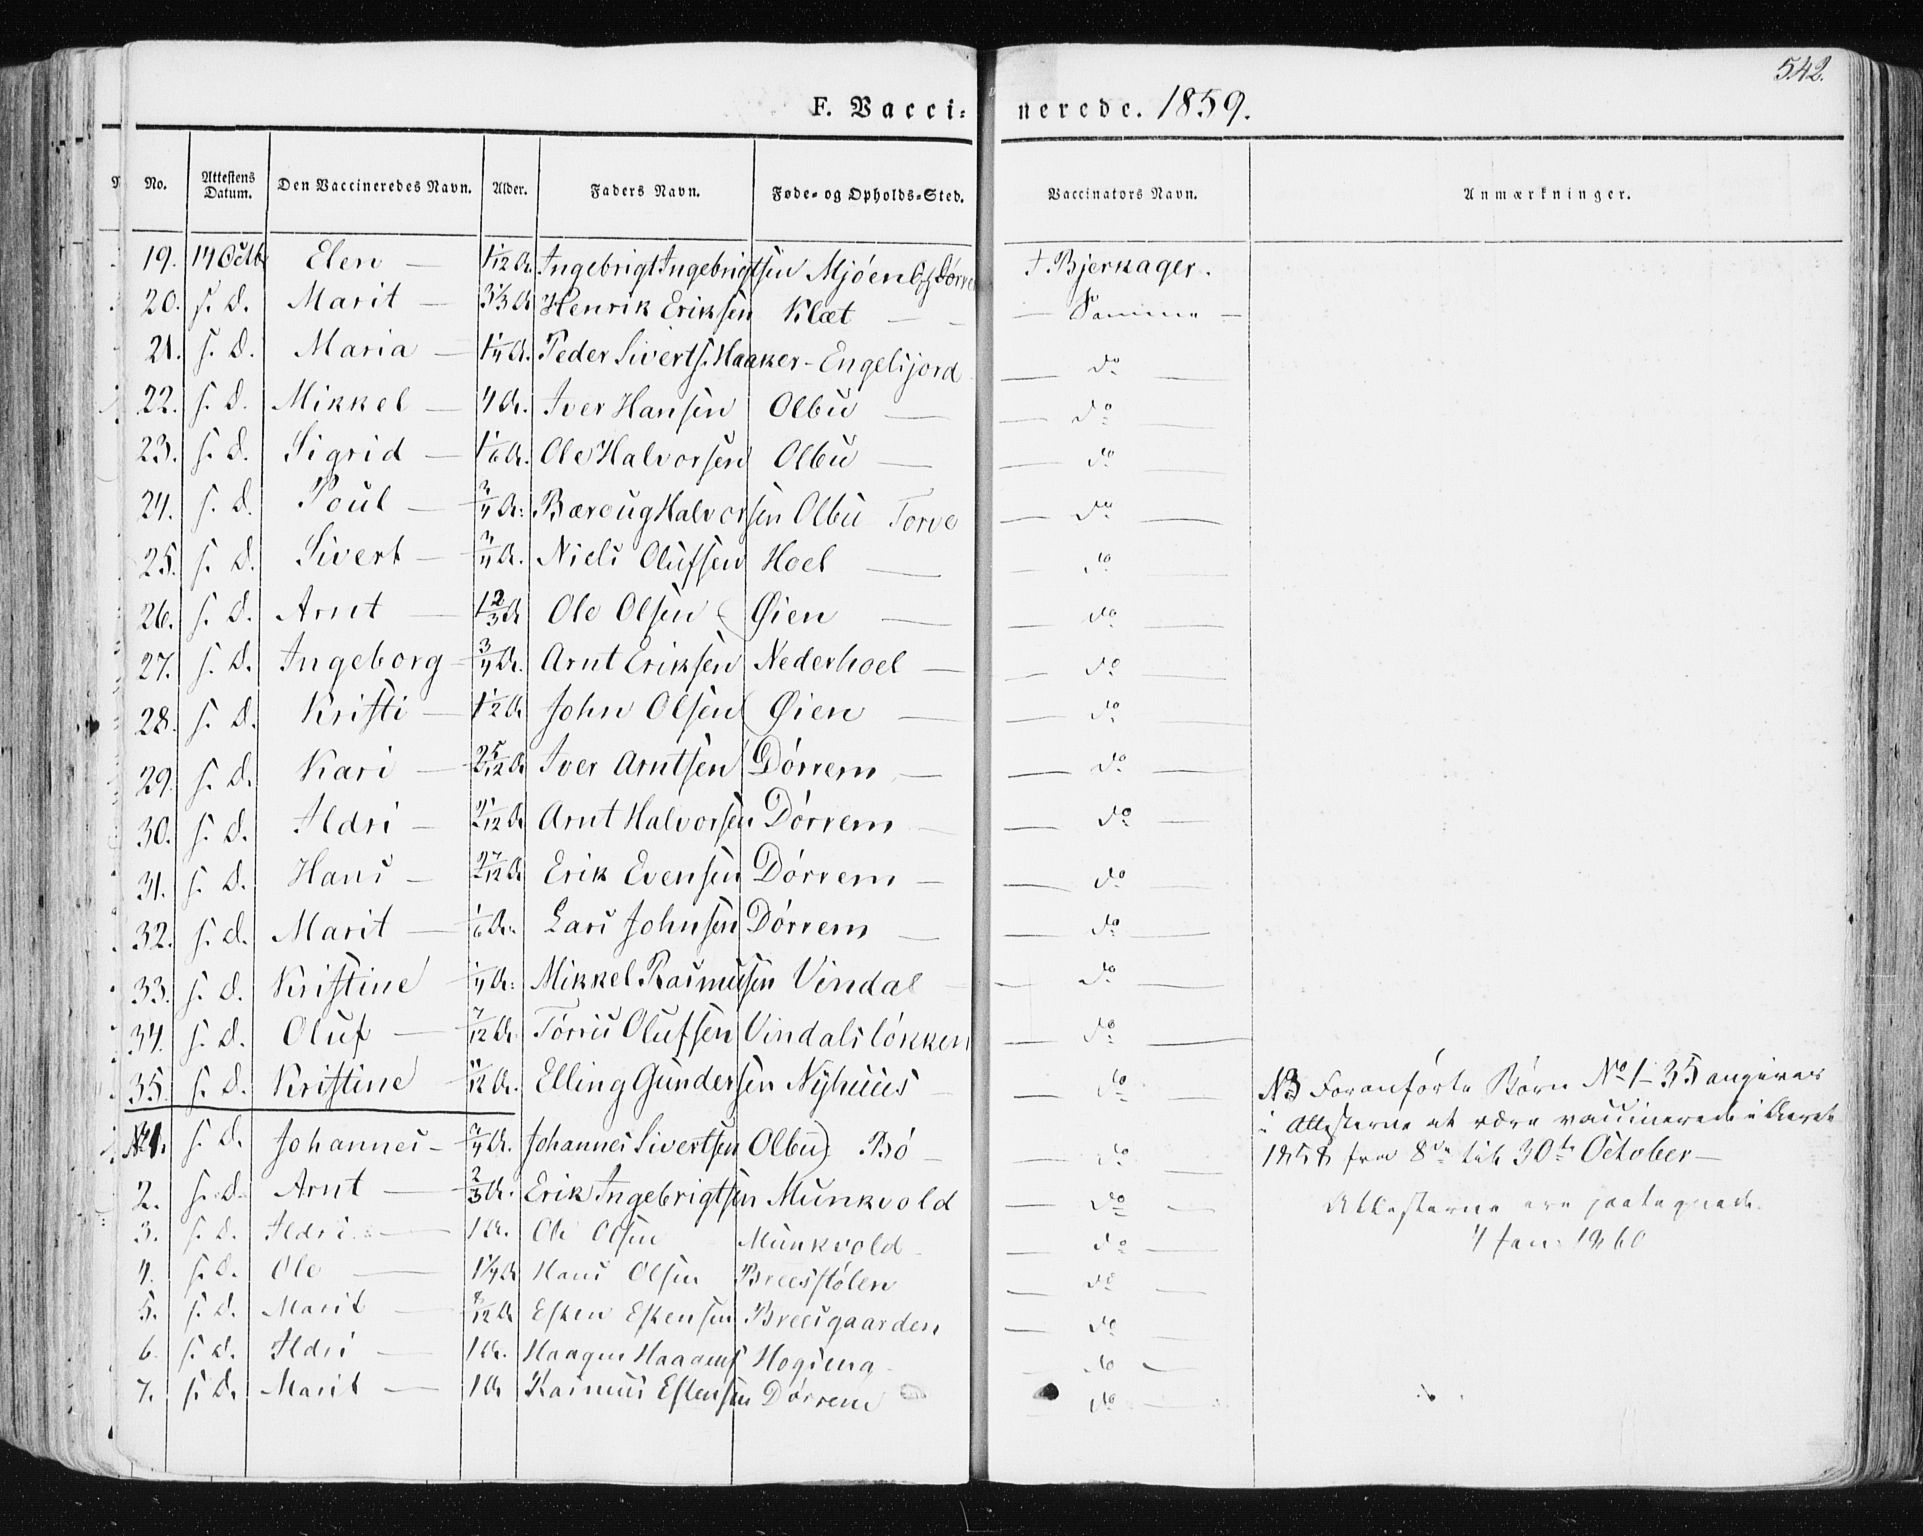 542.
F. Vacci= nerede. 1859.
No. Attestens Datum. Den Vaccineredes Navn. Alder. Faders Navn. Føde= og Opholds=Sted. Vaccinators Navn. Anmærkninger.
19. 17 Octb Elen — 1 1/12 A. Ingebrigt Ingebrigtsen Mjóen Dórre J. Bjerkager.
20. s. D. Marit — 3 1/3 A Henrik Eriksen Klæt — — — Samme —
21. s. D. Maria — 1 1/4 A. Peder Siverts. Haaker - Engelsjord — do —
22. s. D. Mikkel — 4 A. Iver Hansen Olbu — — do —
23. s. D. Sigrid — 1 1/6 A. Ole Halvorsen Olbu — — do —
24. s. D. Poul — 3/4 A: Halvorsen Olbu Torve — do —
25. s. D. Sivert — 3/4 A. Niels Olufsen Hoel — — do —
26. s. D. Arnt — 1 2/3 A Ole Olsen Øien — — do —
27. s. D. Ingeborg — 3/4 A. Arnt Eriksen Nederhoel — — do —
28. s. D. Kristi — 1 1/2 A John Olsen Øien — — do —
29. s. D. Kari — 2 5/12 A Iver Arntsen Dórrem — — do —
30. s. D. Ildri — /12 A Arnt Halvorsen Dórrem — — do —
31. s. D. Hans — /12 A Erik Evensen Dórrem — — do —
32. s. d. Marit — 1/6 A. Lars Johnsen Dórrem — — do —
33. s. d. Kristine 1/4 A: Mikkel Rasmussen Vindal — — do —
34. s. D. Oluf — 7/12 A. Tórris Olufsen Vindalslókken — do —
35. s. D. Kristine 11/12 A. Elling Gundersen Nyhuus — — do — NB Foranfórte Bórn No 1–35 angives
i Attesterne at være vaccinerede i Aaret
No 1. s. D. Johannes — 3/4 A. Johannes Sivertsen Olbu) Bó — — do — 1858 fra 8de til 30te October —
2. s. D. Arnt — 2/3 A. Erik Ingebrigtsen Munkvold — do — Attesterne ere paategnede
3. s. D. Ildri — 1 A. Ole Olsen Munkvold — do — 4 Jan. 1860
4. s. D. Ole — 1 1/4 A Hans Olsen Breesstólen — do —
5. s. D. Marit — 8/12 A Esten Estensen Breesgaarden — do —
6. s. d. Ildri — 1 A. Haagen — do —
7. s. D. Marit — 1 A Rasmus Estensen Dórrem do —